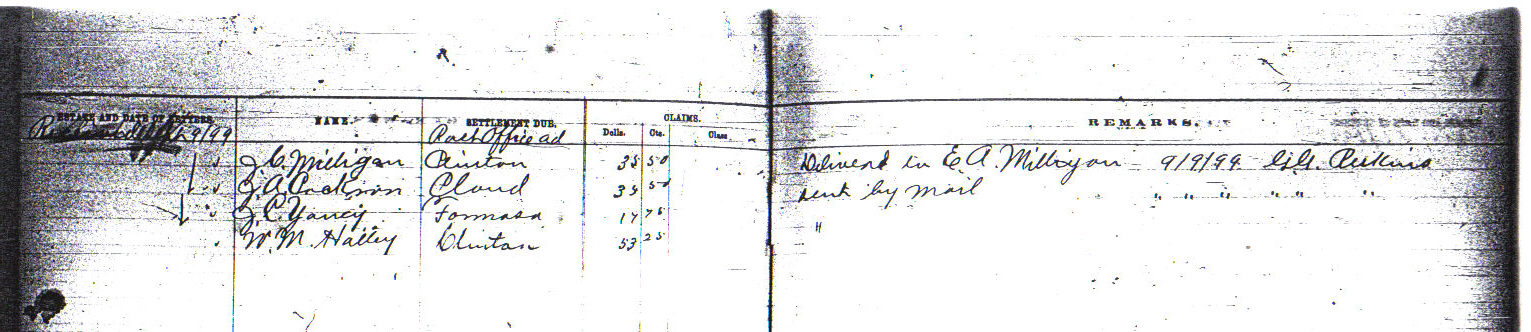 ESTATE AND DATE OF LETTERS. NAME. SETTLEMENT DUE. CLAIMS. REMARKS.
Dolls. Cts. Class
9/99 Post Office ad
J. C. Milligan Clinton 35 50 Deliverd to E. A. Milligan 9/9/99. G. G. Perkins
J. A. Jackson Cloud 35 50 sent by mail " " " " " "
J. C. Yancy Formosa 17 75 "
W. M. Halley Clinton 53 25